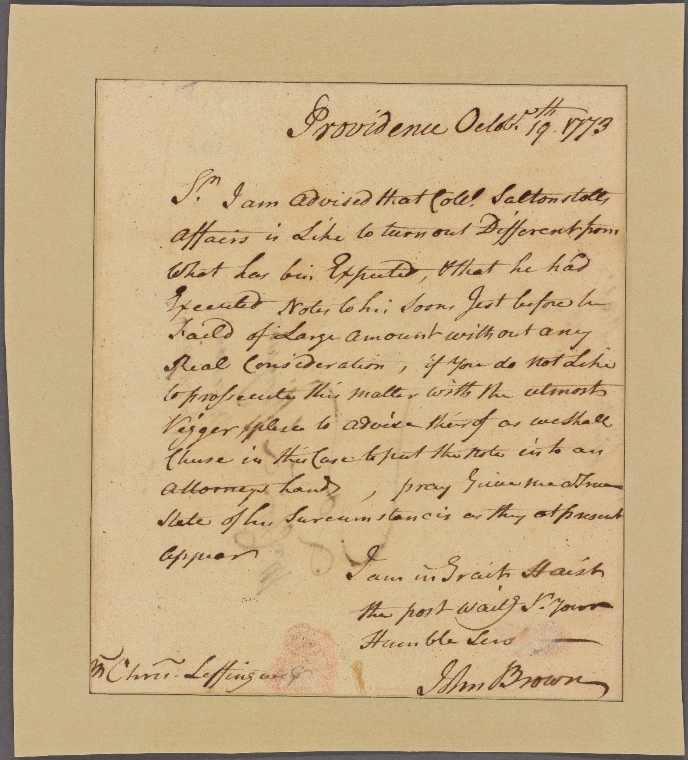 Providence Octobr. 19th. 1773
Sr. I am advised that Coll. Saltonstolls
affairs is Like to turn out Different from
what has bin Expected, & that he had
Executed Notes to his Soons Jest before he
Faild of Large amount without any
Real Consideration, if you do not Like
to prossecute this matter with the utmost
Vigger, plese to advise theirof as we shall
Chuse in this Case to put the Note into an
Attorneys hands, pray Give me a True
State of his Surcumstancis as they at present
appear
I am in Grait Haist
the post waitg Sr. Your
Humble Serv
John Brown
Mr. Chrisr. Leffingwell